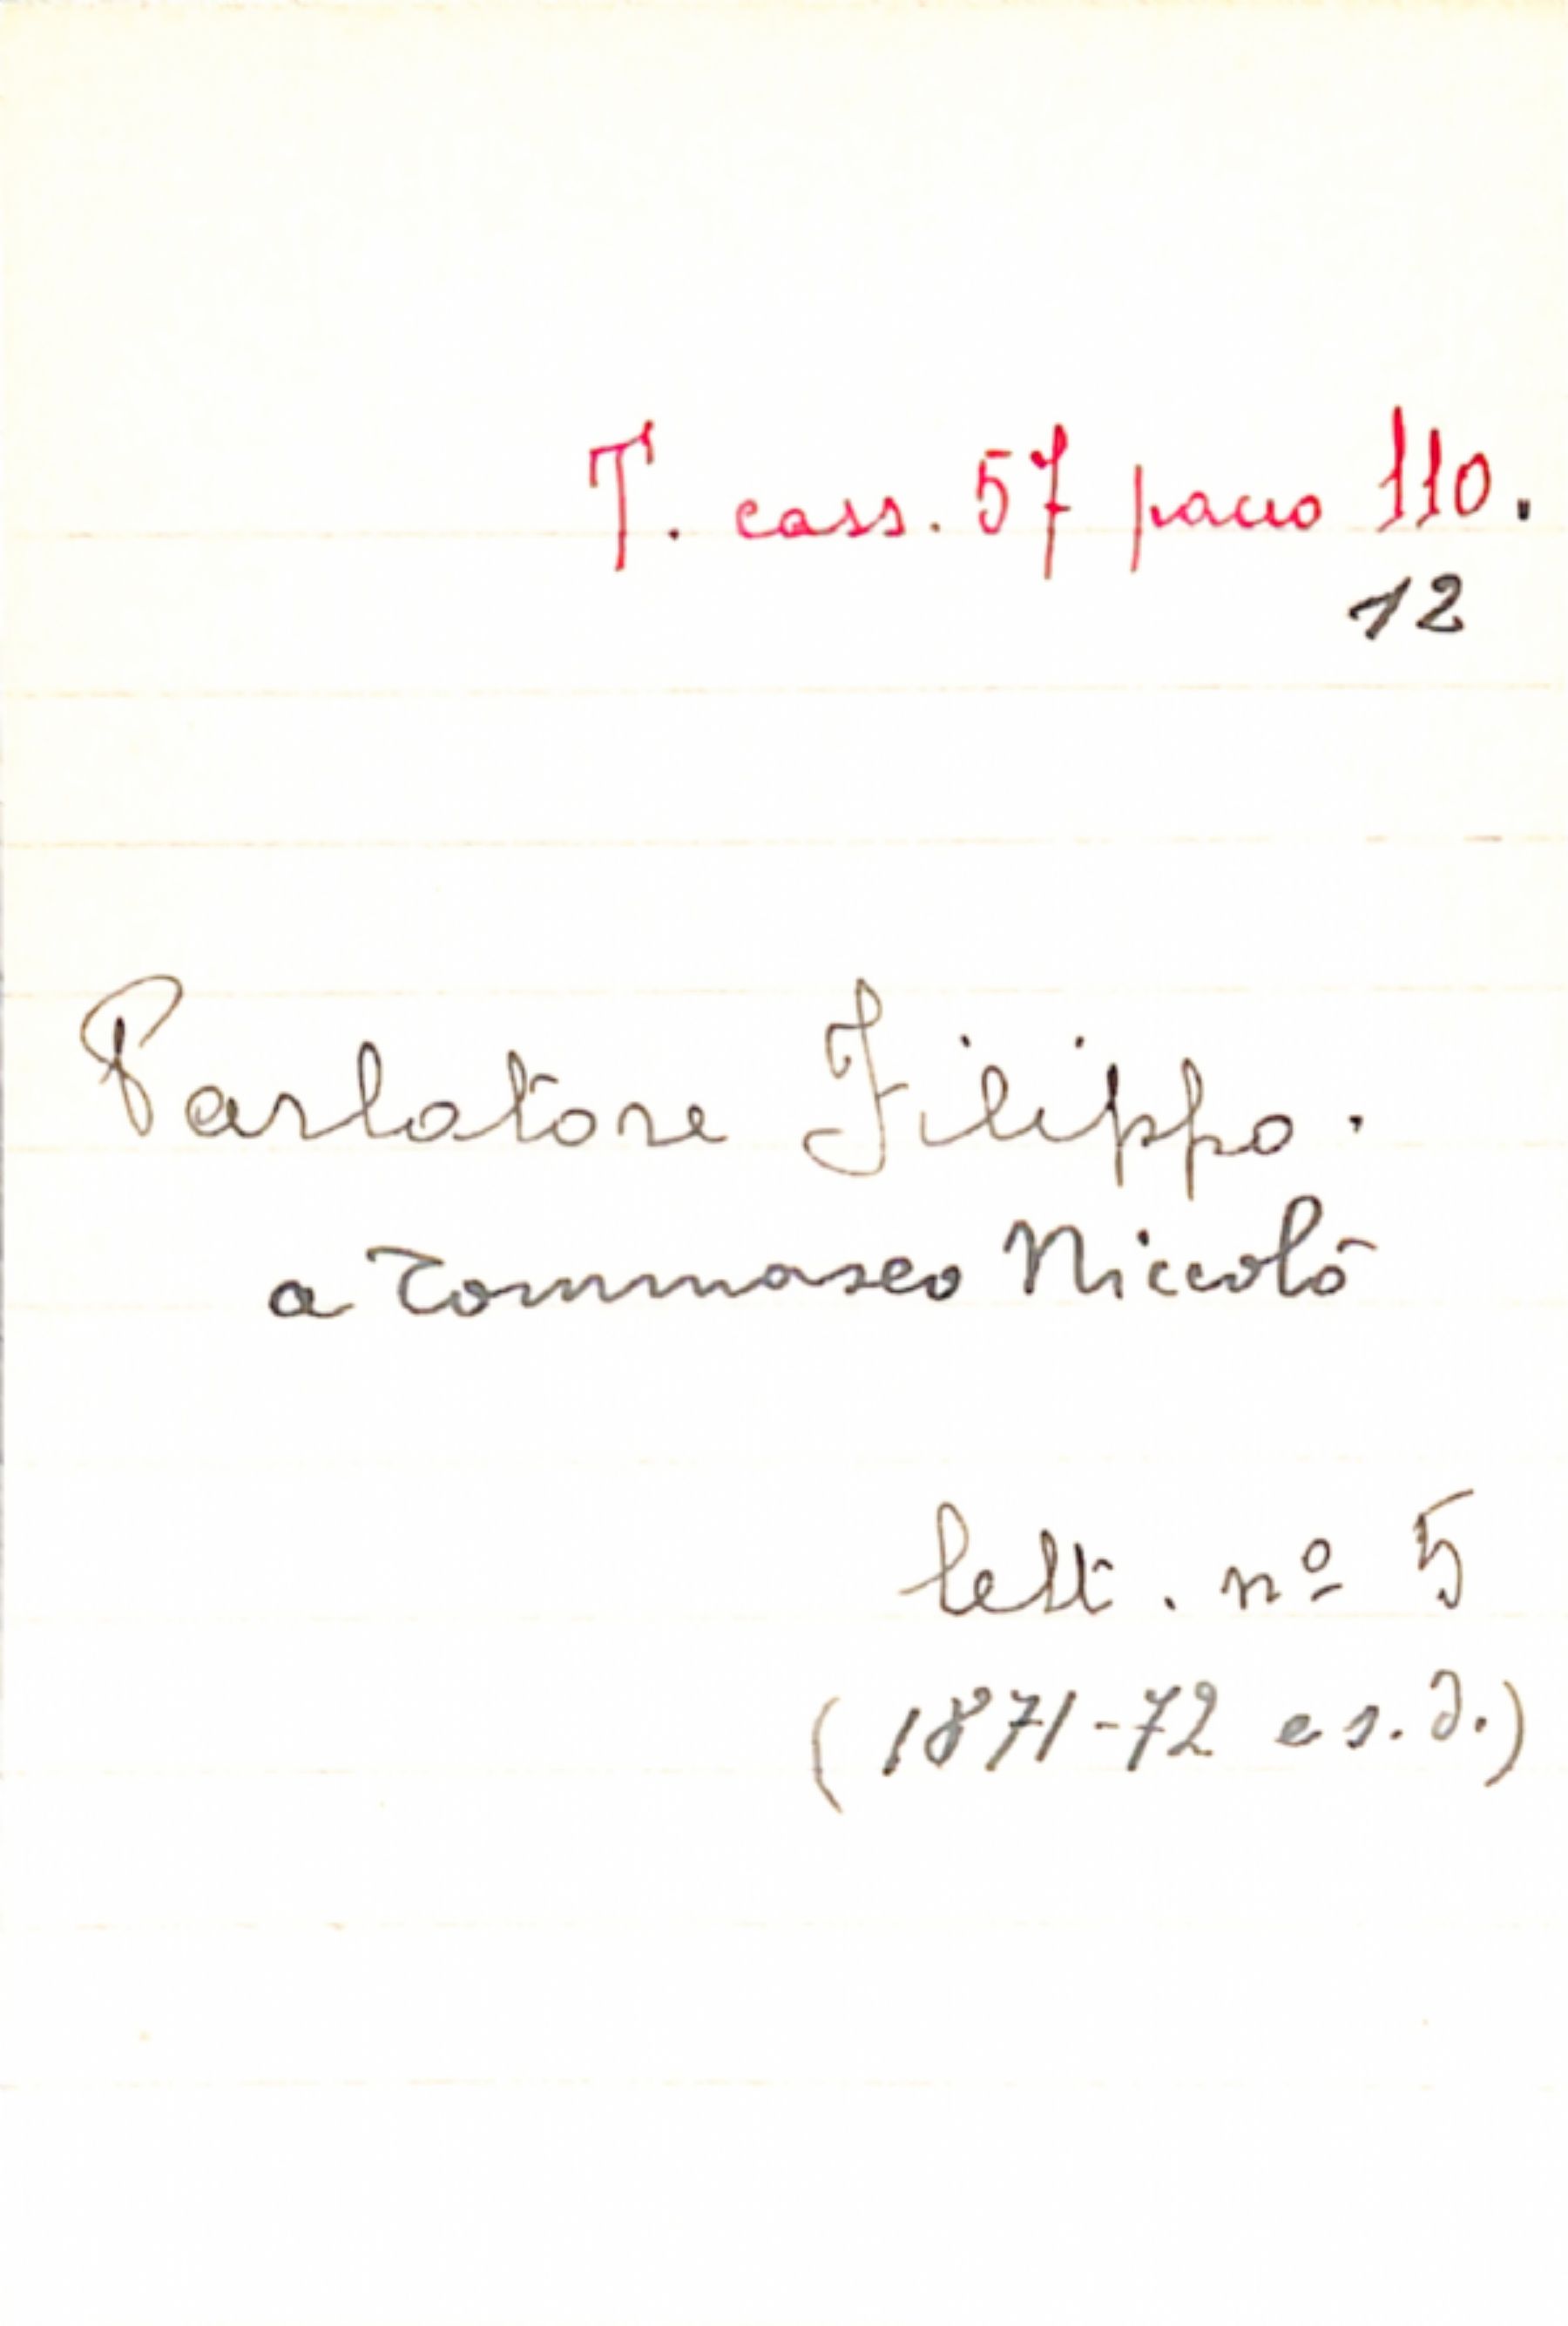 T. cass. 57 pacco 110.
12
Parlatore Filippo.
a Tommaseo Niccolò
lett. nº 5
(1871-72 e s. d.)